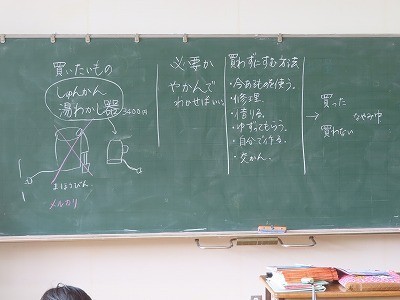 買いたいもの
しゅんかん
湯わかし器
3400円
まほうびん
メルカリ
必要か
やかんで
わかせばいい。
買わずにすむ方法
・今あるものを使う。
・修理
・借りる。
・ゆずってもらう。
・自分で作る。
・欠かん。
→
買った
なやみ中
買わない